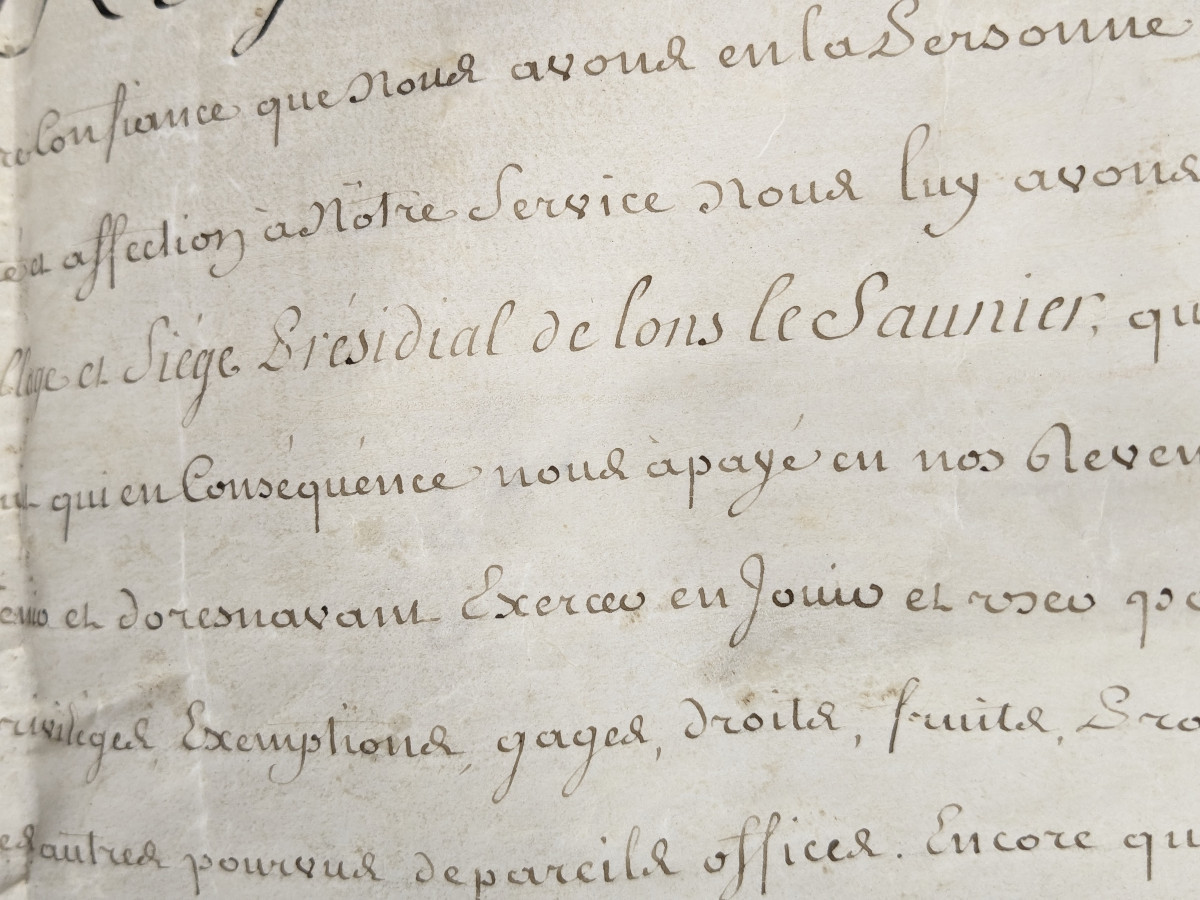 Confiance que Nous avons en la Personne
et affection à Nôtre Service Nous luy avons
et Siége Présidial de lons le Saunier, qu
qui en Conséquence nous à payé en nos Reven
et doresnavant Exercer en Jouir et user po
rivileges, Exemptions, gages, droits, fruits, Pro
es autres pourvus de pareils offices. Encore qu